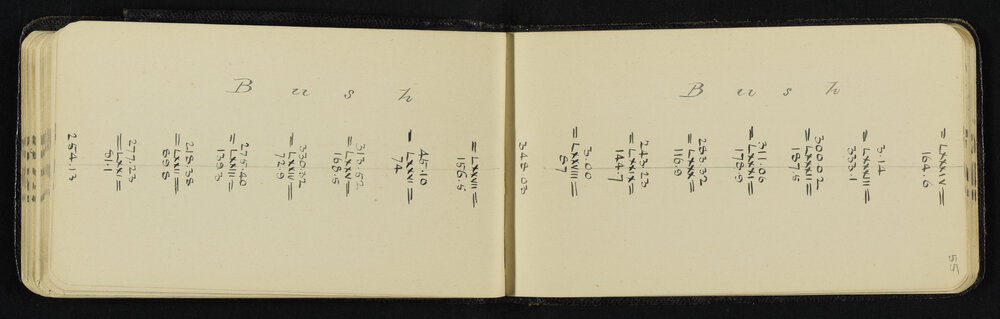 Bush
= LXXVII =
156.5
45.10
= LXXVI =
74
313.52
= LXXV =
168.5
330.32
= LXXIV =
72.9
275.40
= LXXIII =
139.3
218.38
= LXXII =
89.8
277.23
= LXXI =
51.1
254.13
Bush
= LXXXIV =
164.6
3.14
= LXXXIII =
333.1
300.02
= LXXXII =
187.5
311.06
= LXXXI =
178.9
283.32
= LXXX =
116.9
243.23
= LXXIX =
144.7
3.00
= LXXVIII =
87
348.03
55